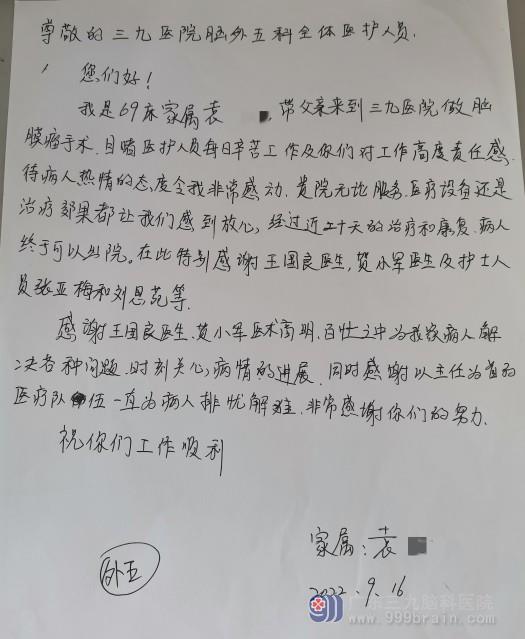 尊敬的三九医院脑外五科全体医护人员.
您们好!
我是69床家属袁 , 带父亲来到三九医院做脑
膜瘤手术. 目睹医护人员每日辛苦工作及你们对工作高度责任感.
待病人热情的态度令我非常感动. 贵院无论服务.医疗设备还是
治疗效果都让我们感到放心, 经过近二十天的治疗和康复.病人
终于可以出院。在此特别感谢王国良医生, 贺小军医生及护士人
员张亚梅和刘思范等.
感谢王国良医生.贺小军医术高明.百忙之中为我家病人解
决各种问题.时刻关心病情的进展.同时感谢以主任为首的
医疗队伍一直为病人排忧解难.非常感谢你们的努力.
祝你们工作顺利
家属:袁
外五
2022.9.16
广东三九脑科医院
www.999brain.com